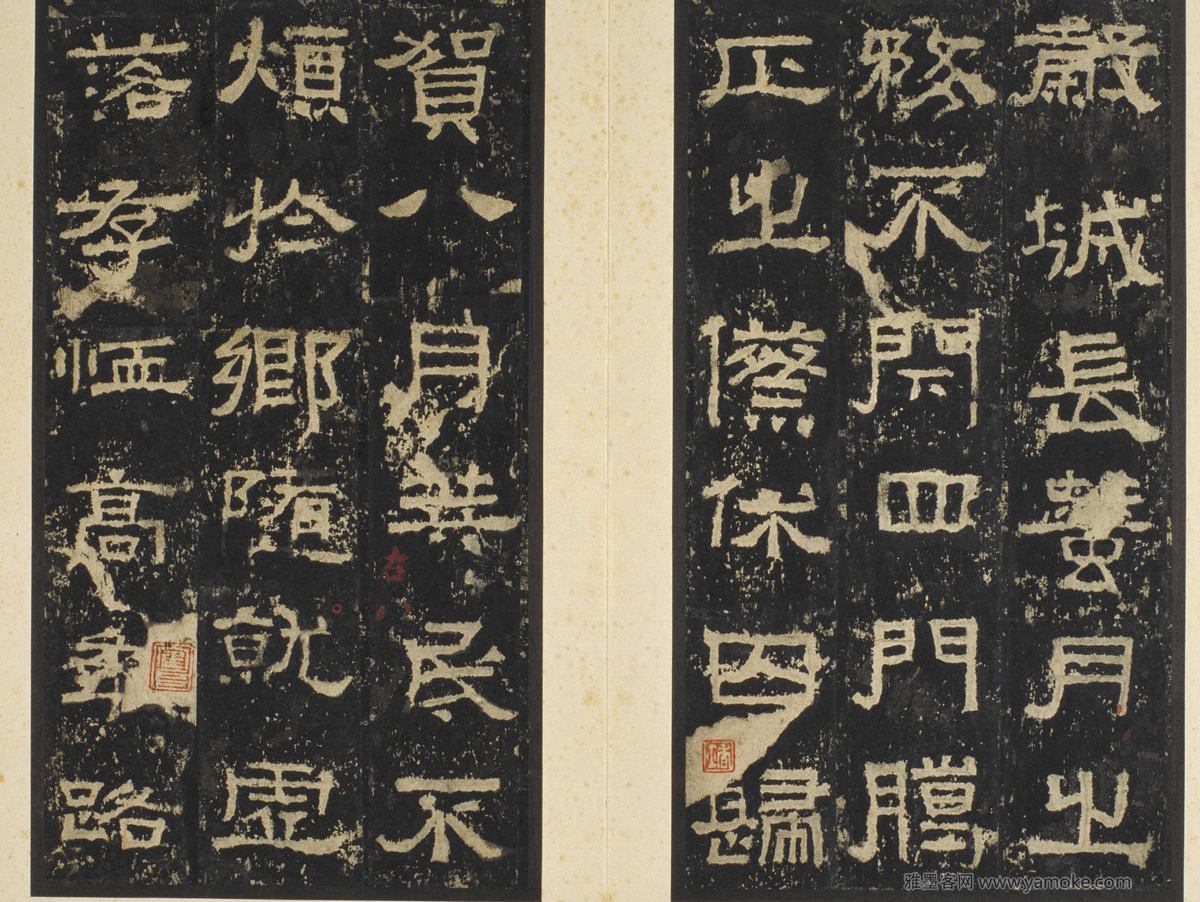 穀城長蠶月之
務不閉四門臘
正之傺休囚歸
賀八月筭民不
煩於鄉隨就虛
落存恤高年路
雅墨客网 www.yamoke.com